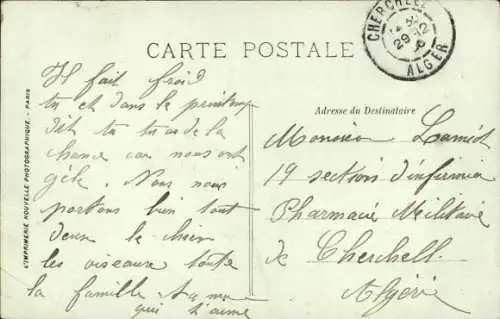 CARTE POSTALE
CHERCHELL
29 12
ALGER
L'IMPRIMERIE NOUVELLE PHOTOGRAPHIQUE - PARIS
Il fait froid
tu et dans le printemps
dit tu tu as de la
chance car nous ont
gèle. Nous nous
portons bien tout
deux le chien
les oiseaux toute
la famille
qui t'aime
Adresse du Destinataire
Monsieur Lamiot
19 section d'infirmier
Pharmacie Militaire
de Cherchell
Algérie